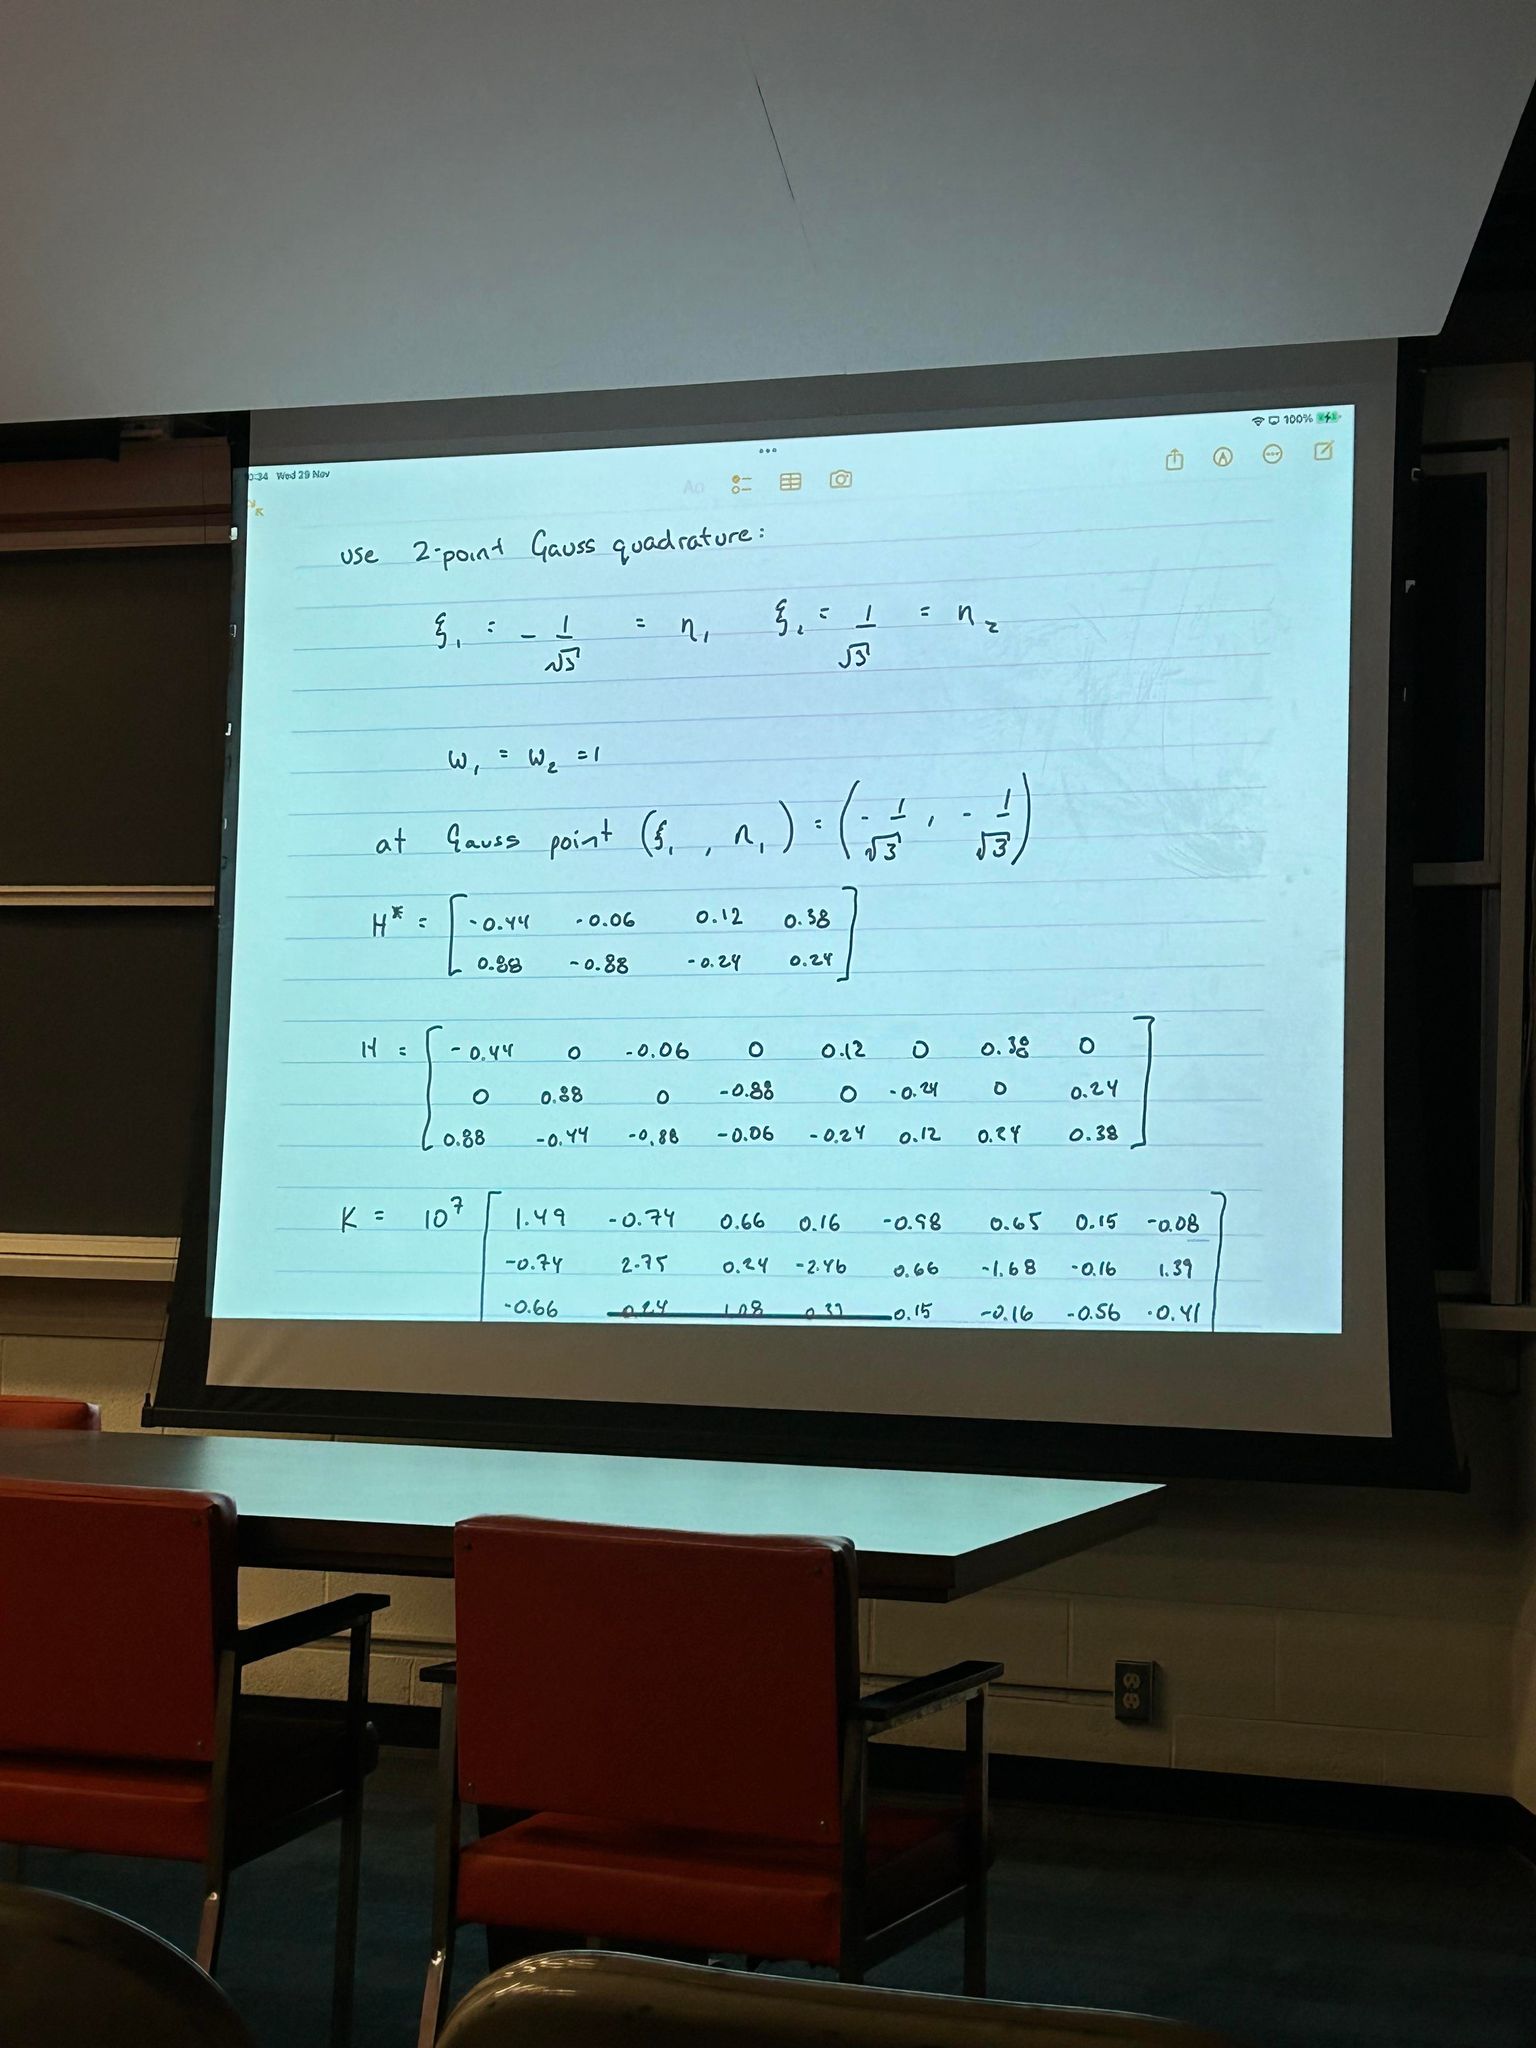 0:34 Wed 29 Nov
100%
Aa
use 2-point Gauss quadrature:
ξ₁ = - 1/√3 = η₁ ξ₂ = 1/√3 = η₂
w₁ = w₂ = 1
at Gauss point (ξ₁, η₁) = (- 1/√3, - 1/√3)
H* = [ -0.44 -0.06 0.12 0.38
0.88 -0.88 -0.24 0.24 ]
H = [ -0.44 0 -0.06 0 0.12 0 0.38 0
0 0.88 0 -0.88 0 -0.24 0 0.24
0.88 -0.44 -0.88 -0.06 -0.24 0.12 0.24 0.38 ]
K = 10⁷ [ 1.49 -0.74 0.66 0.16 -0.98 0.65 0.15 -0.08
-0.74 2.75 0.24 -2.46 0.66 -1.68 -0.16 1.39
-0.66 0.24 1.08 0.15 -0.16 -0.56 -0.41